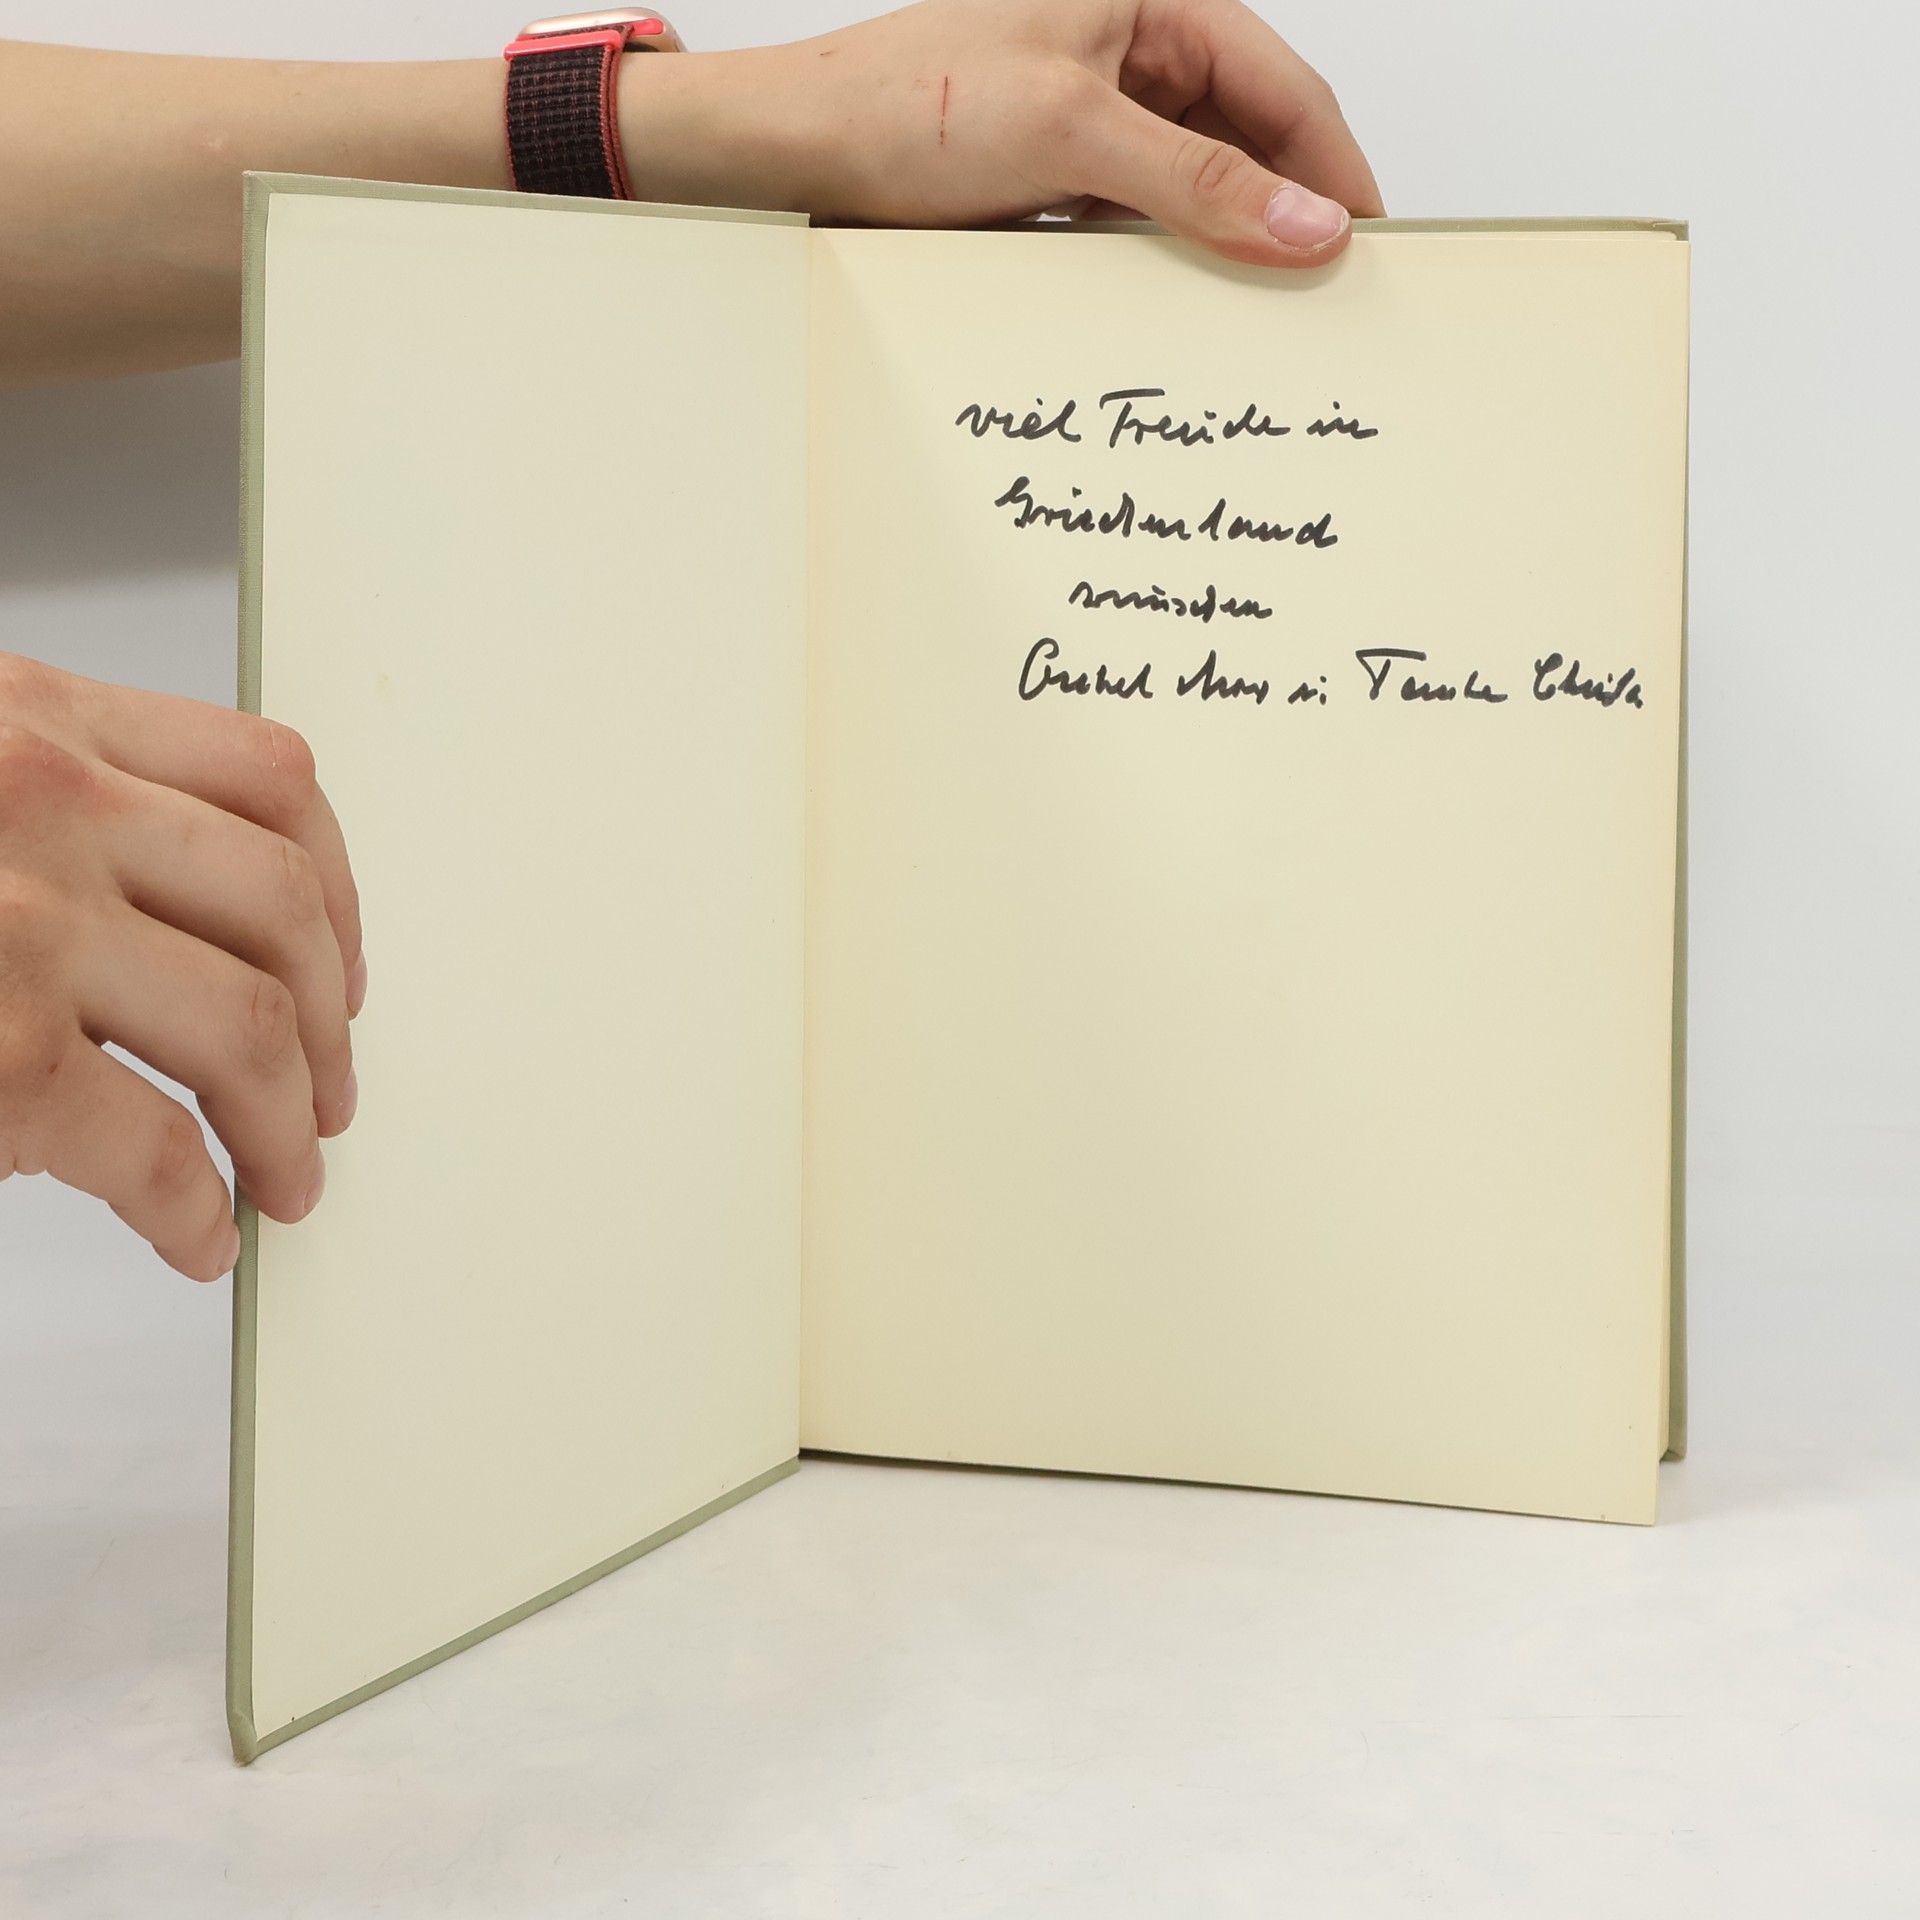 viel Freude in
Griechenland
wünschen
Onkel Max u. Tante Christa